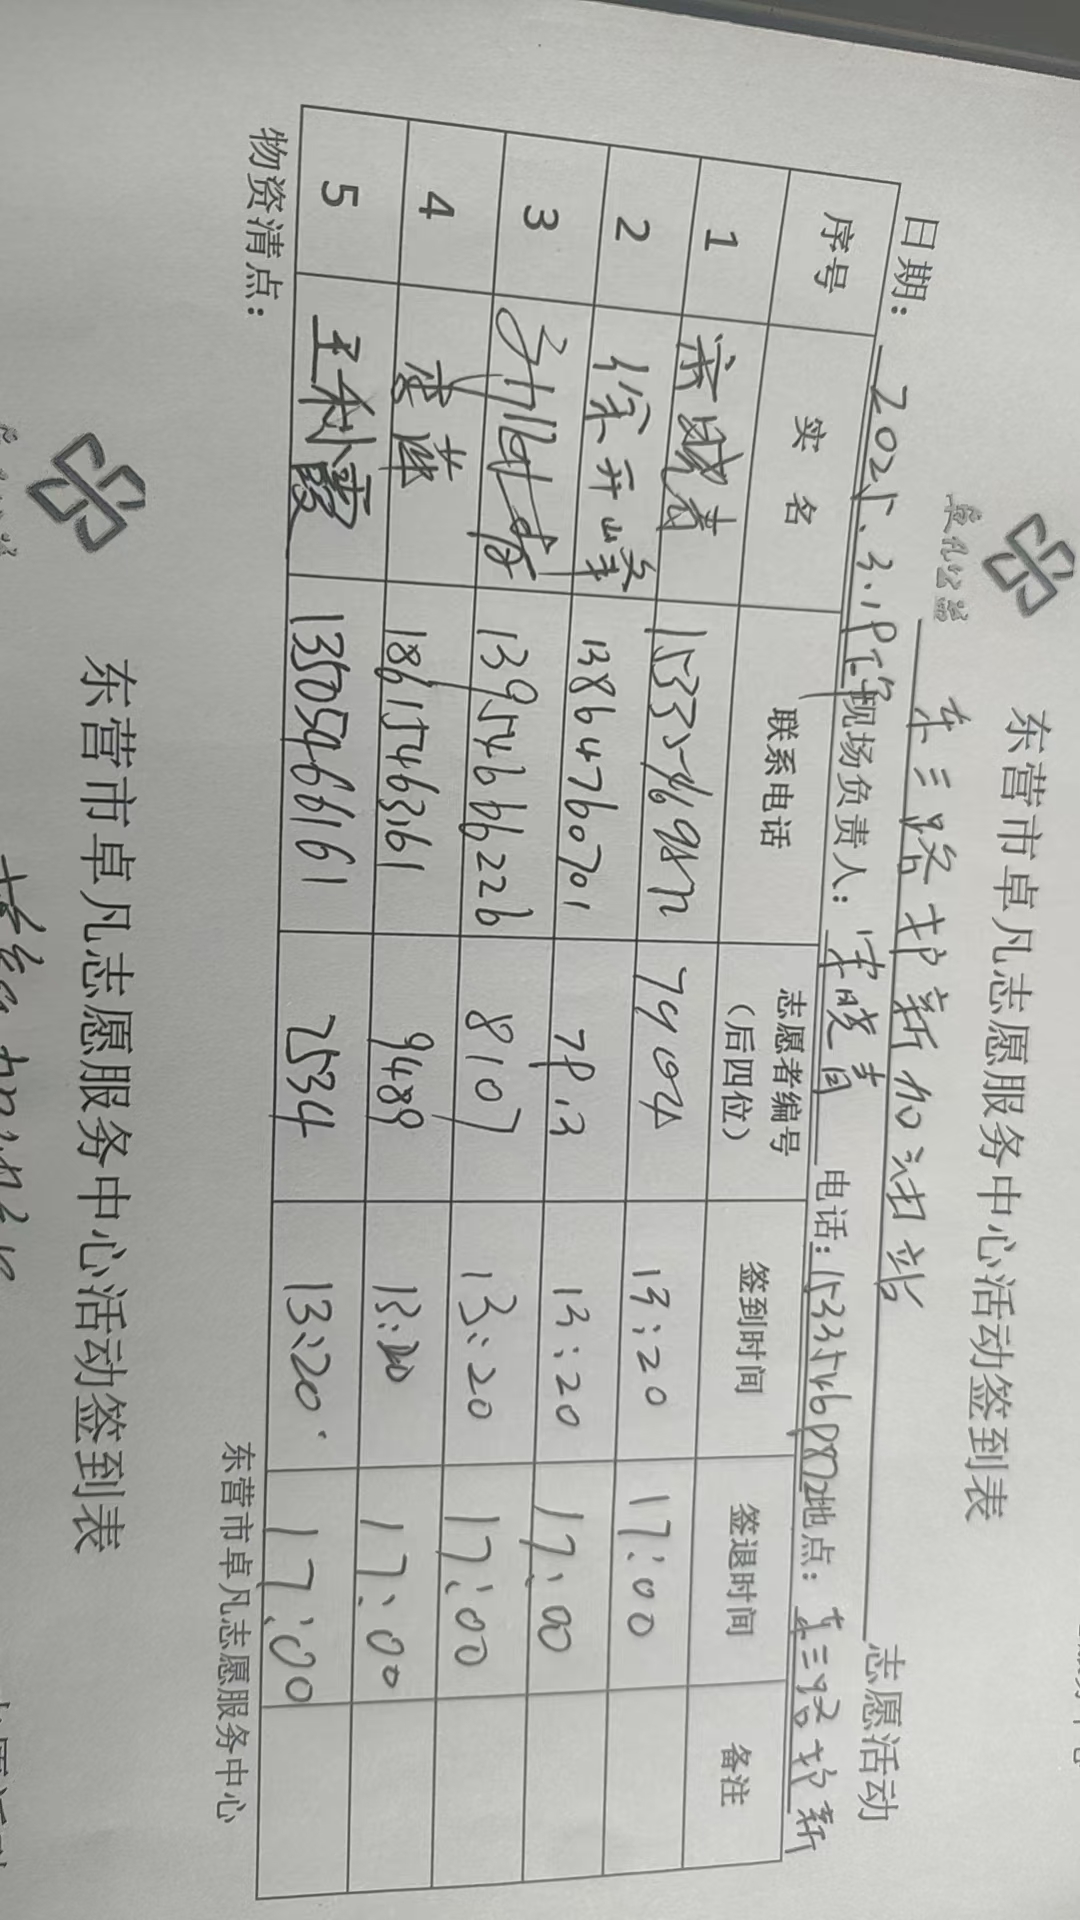 东营市卓凡志愿服务中心活动签到表
卓凡公益
东三路护新加油站 志愿活动
日期： 2025.3.19 现场负责人： 宋晓青 电话： 15335469872 地点： 东三路护新
序号 实名 联系电话 志愿者编号（后四位） 签到时间 签退时间 备注
1 宋晓青 15335469872 7904 13:20 17:00
2 徐开峰 13864760701 13:20 17:00
3 13954666226 8107 13:20 17:00
4 18615463161 9489 13:20 17:00
5 王秋霞 13505466161 2534 13:20. 17:00
物资清点： 东营市卓凡志愿服务中心
东营市卓凡志愿服务中心活动签到表